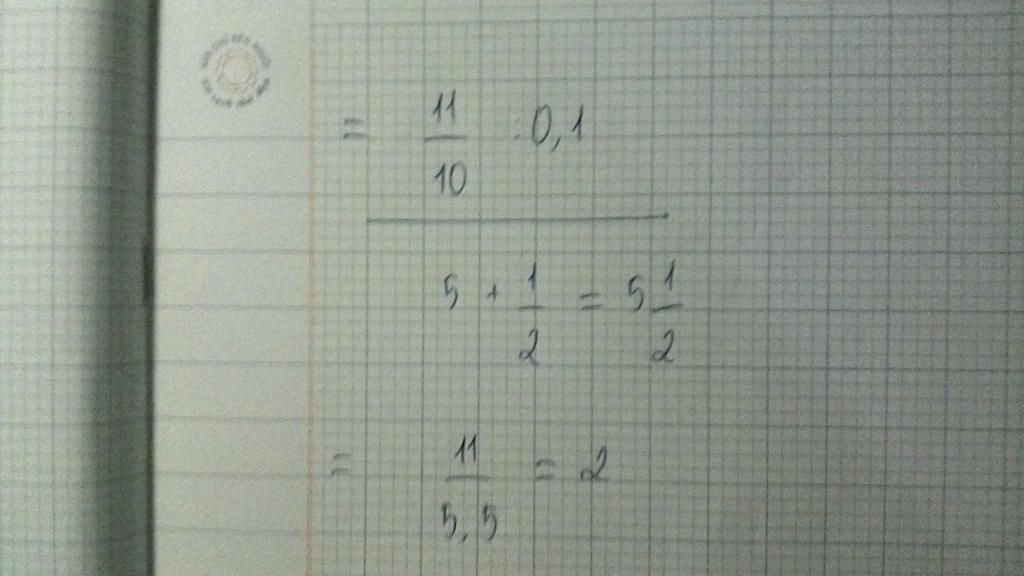 = 11/10 : 0,1
5 + 1/2 = 5 1/2
= 11/5,5 = 2